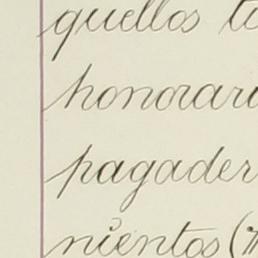 quellos
honorar
pagader
nientos (